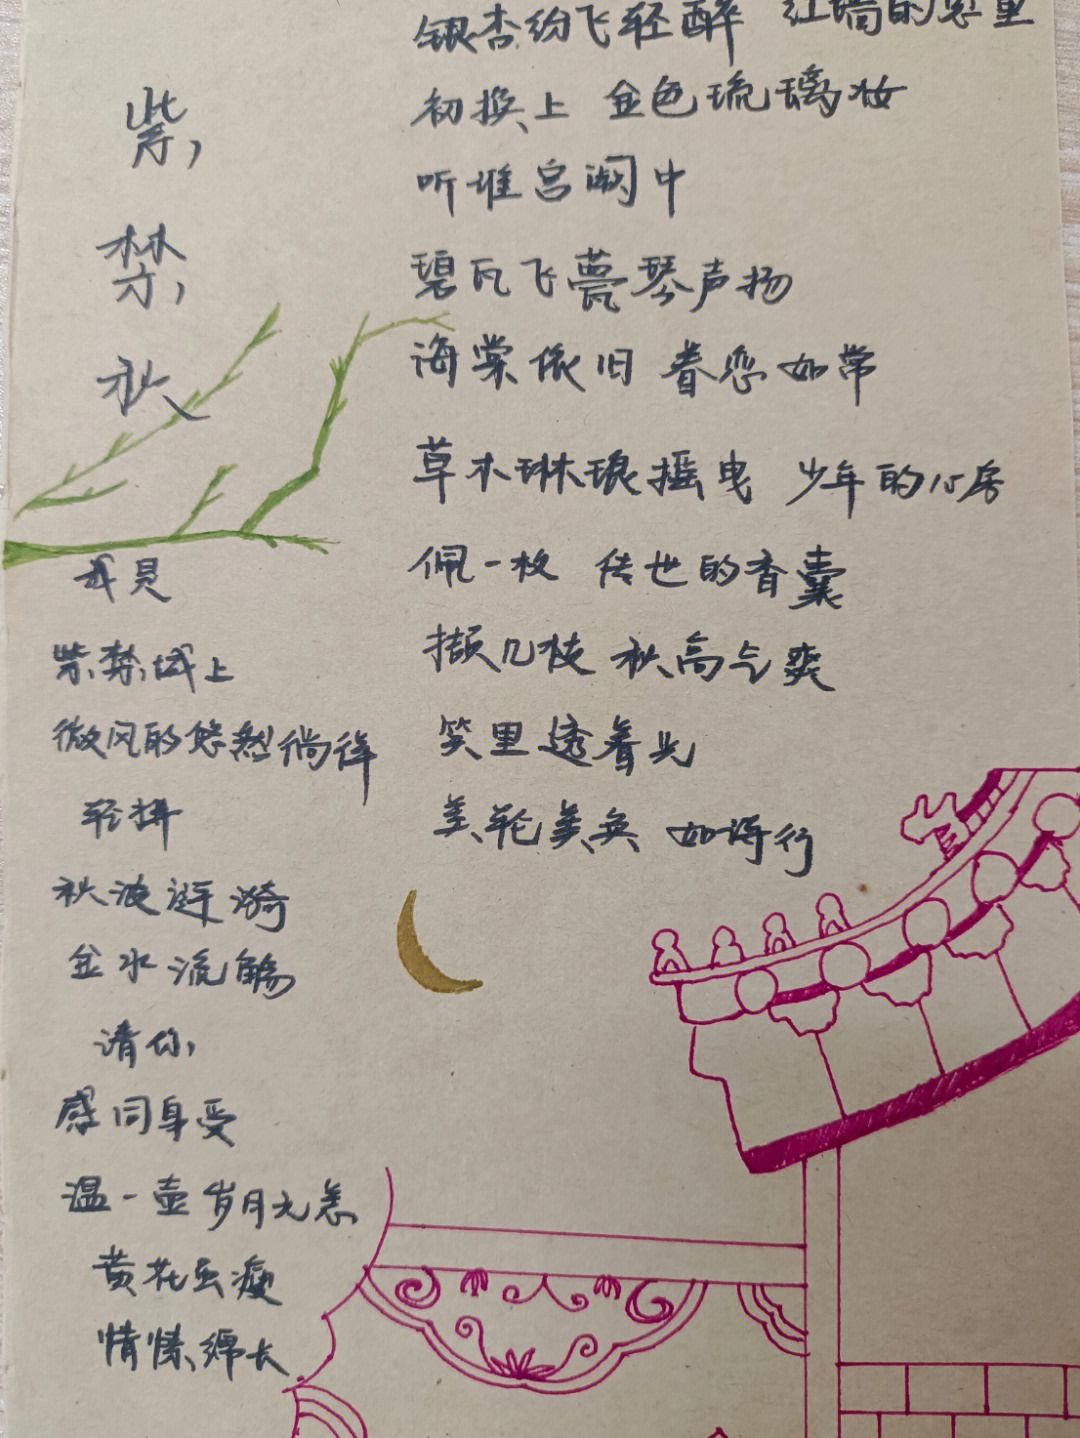 紫禁秋
银杏纷飞轻醉 红墙的
初换上 金色琉璃妆
听谁宫阙中
碧瓦飞甍琴声扬
海棠依旧 眷恋如常
草木琳琅摇曳 少年的心房
佩一枚 传世的香囊
撷几枝 秋高气爽
笑里透着光
美轮美奂 如诗行
我见
紫禁城上
微风的悠然徜徉
轻拂
秋波涟漪
金水流觞
请你
感同身受
温一壶岁月无恙
黄花虽瘦
情愫绵长